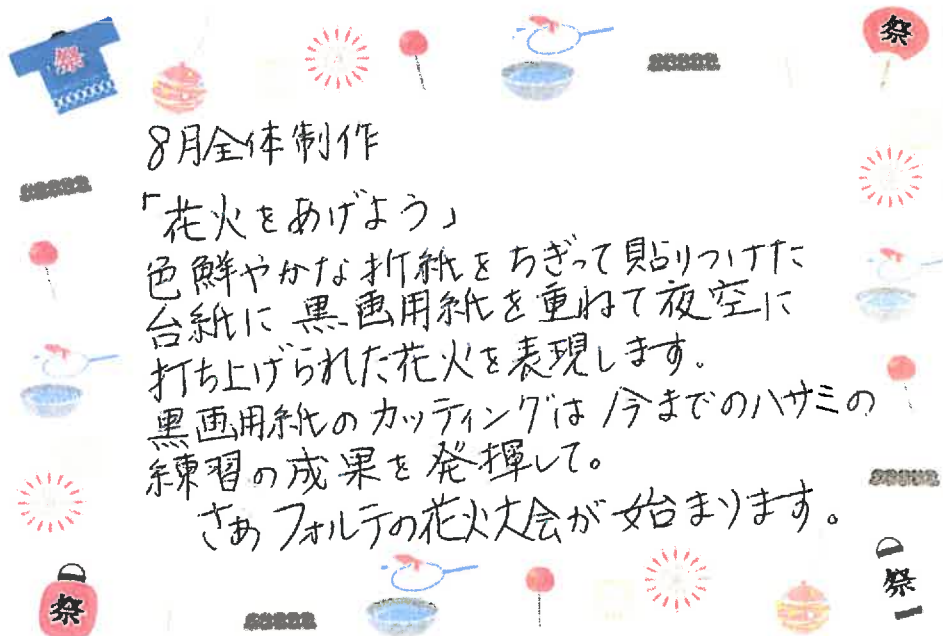 祭
祭
8月全体制作
「花火をあげよう」
色鮮やかな折紙をちぎって貼りつけた
台紙に黒画用紙を重ねて夜空に
打ち上げられた花火を表現します。
黒画用紙のカッティングは今までのハサミの
練習の成果を発揮して。
さあフォルテの花火大会が始まります。
祭
祭